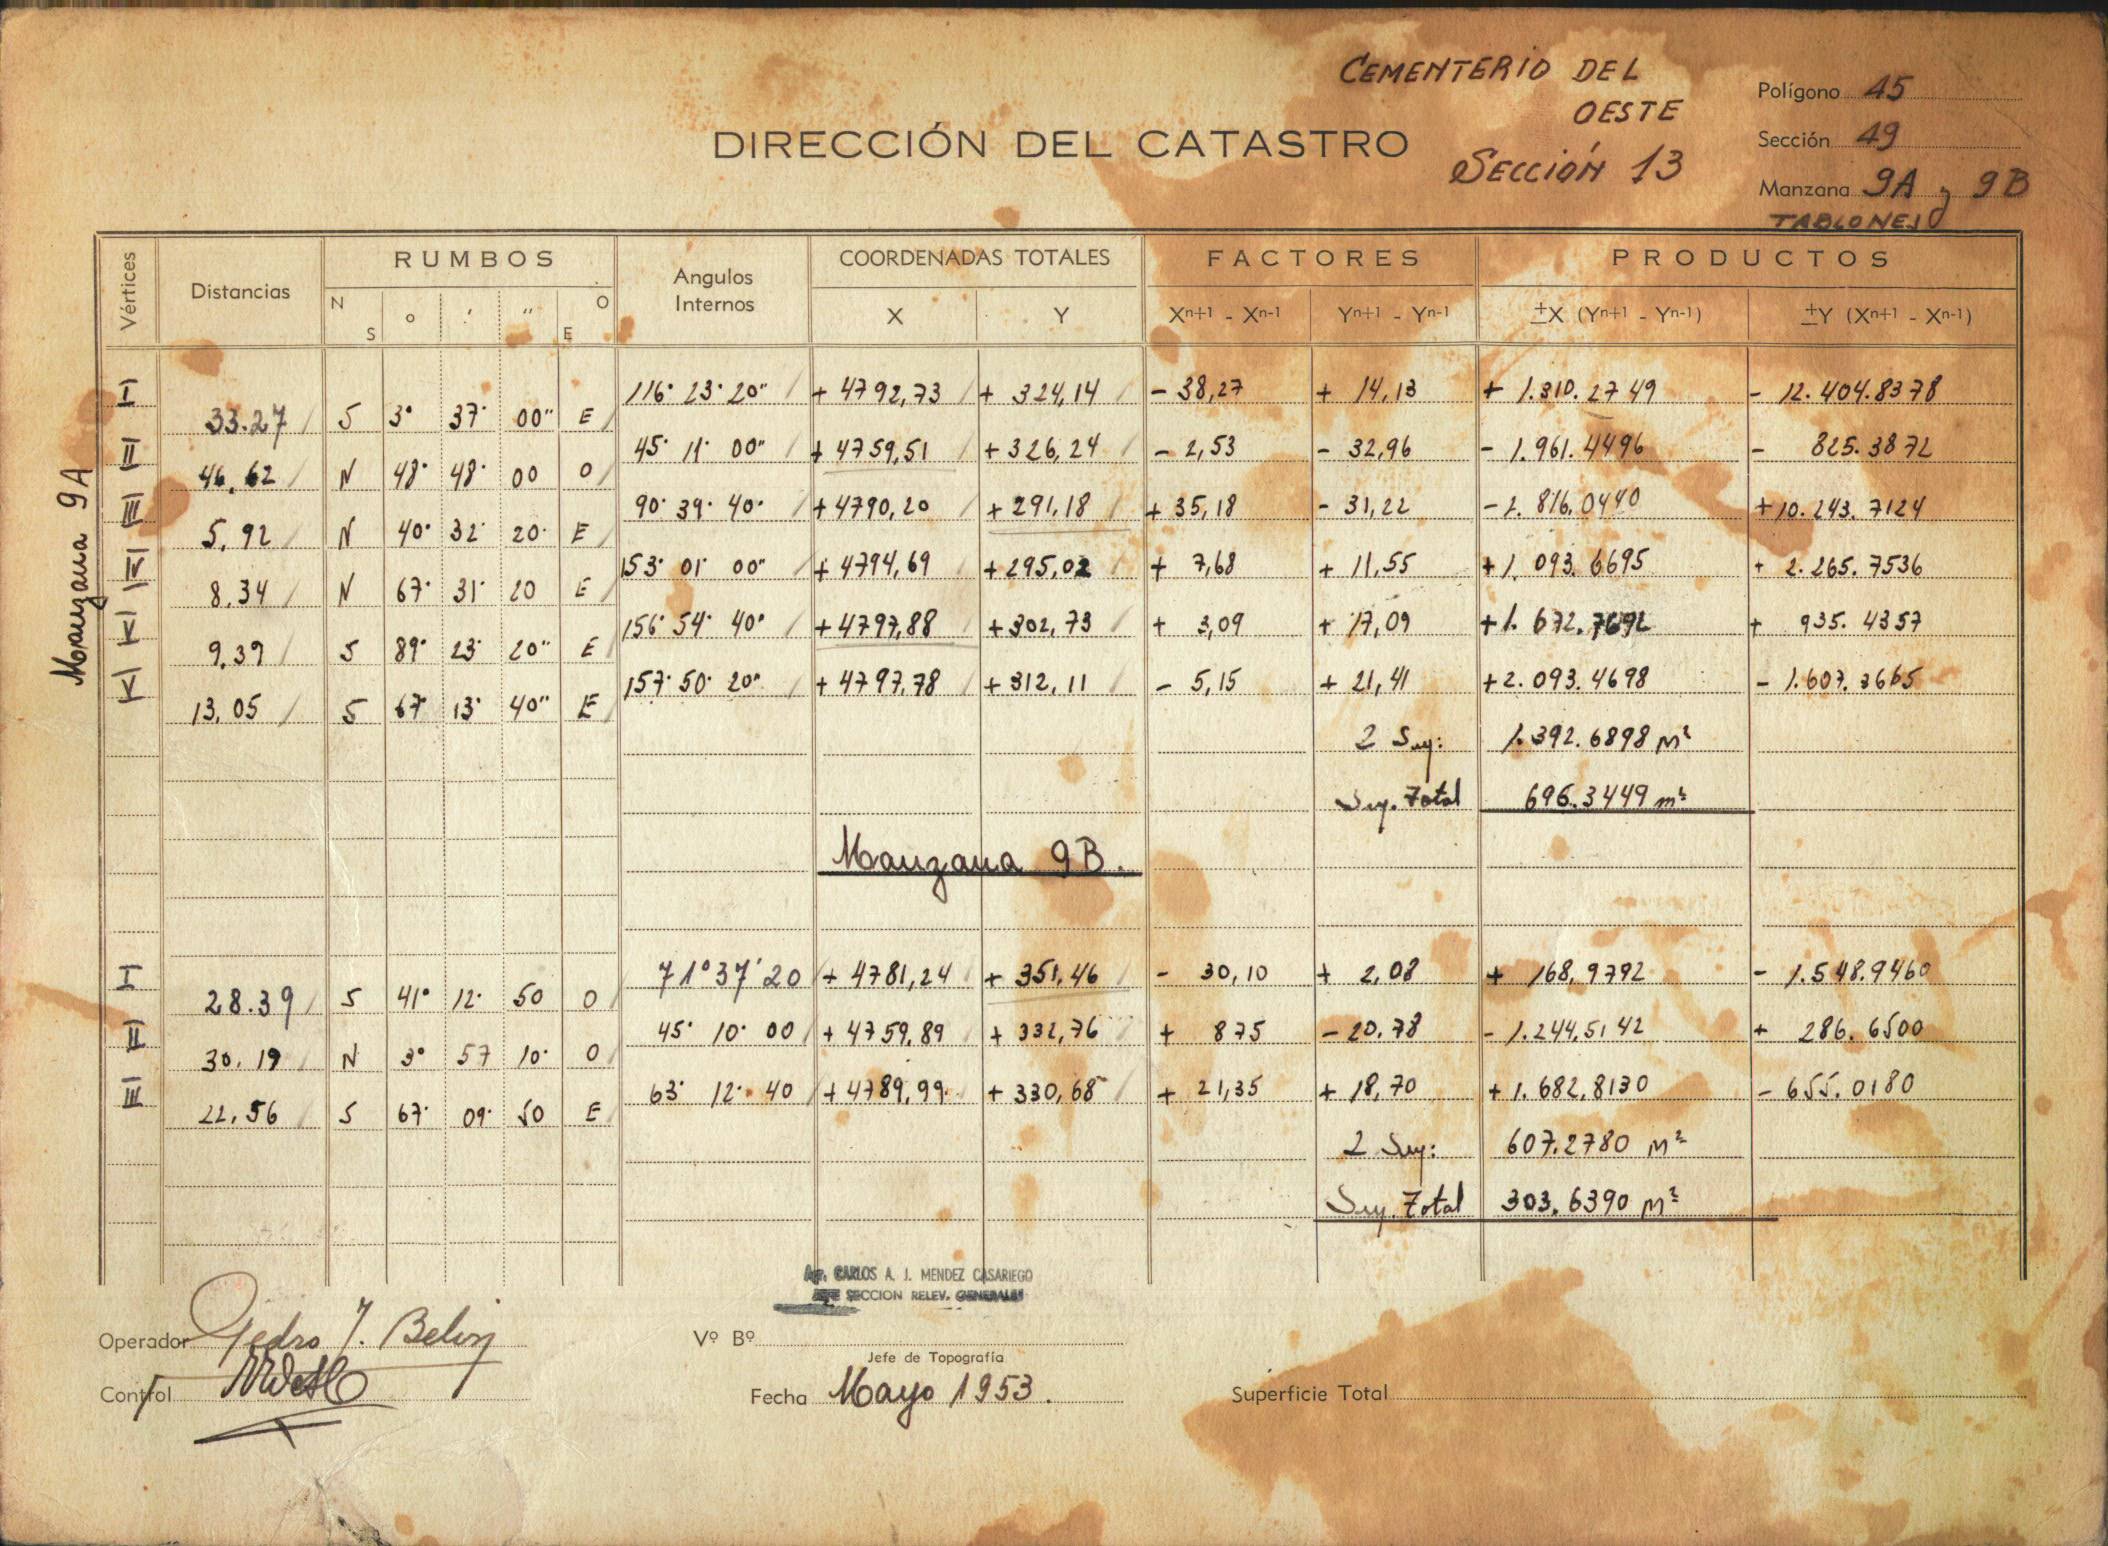 CEMENTERIO DEL
OESTE
SECCIÓN 13
DIRECCIÓN DEL CATASTRO
Polígono 45
Sección 49
Manzana 9A y 9B
TABLONES
Vértices Distancias RUMBOS Angulos Internos COORDENADAS TOTALES FACTORES PRODUCTOS
N S ° ' " E O X Y Xn+1 - Xn-1 Yn+1 - Yn-1 ±X (Yn+1 - Yn-1) ±Y (Xn+1 - Xn-1)
Manzana 9A
I 116° 23' 20" + 4792,73 + 324,14 - 38,27 + 14,13 + 1.310.2749 - 12.404.8378
33.27 S 3° 37' 00" E
II 45° 11' 00" + 4759,51 + 326,24 - 2,53 - 32,96 - 1.961.4496 - 825.3872
46.62 N 48° 48' 00 O
III 90° 39' 40' + 4790,20 + 291,18 + 35,18 - 31,22 - 2.816,0440 + 10.243.7124
5,92 N 40° 32' 20' E
IV 153° 01' 00" + 4794,69 + 295,02 + 7,68 + 11,55 + 1.093.6695 + 2.265.7536
8.34 N 67° 31' 20 E
V 156° 54' 40" + 4797,88 + 302,73 + 3,09 + 17,09 + 1.672.7692 + 935.4357
9.39 S 89° 23' 20" E
VI 157° 50' 20" + 4797,78 + 312,11 - 5,15 + 21,41 + 2.093.4698 - 1.607.3665
13.05 S 67° 13' 40" E
2 Sup: 1.392.6898 m²
Sup. Total 696.3449 m²
Manzana 9B.
I 71° 37' 20 + 4781,24 + 351,46 - 30,10 + 2,08 + 168,9792 - 1.548.9460
28.39 S 41° 12' 50 O
II 45° 10' 00 + 4759,89 + 332,76 + 875 - 20,78 - 1.244,5142 + 286.6500
30.19 N 3° 57 10' O
III 63° 12' 40 + 4789,99 + 330,68 + 21,35 + 18,70 + 1.682,8130 - 655.0180
22,56 S 67° 09' 50 E
2 Sup: 607.2780 m²
Sup. Total 303.6390 m²
CARLOS A. J. MENDEZ CASARIEGO
SECCION RELEV. GENERALES
Operador Pedro J.
Vº Bº
Jefe de Topografía
Control
Fecha Mayo 1953.
Superficie Total